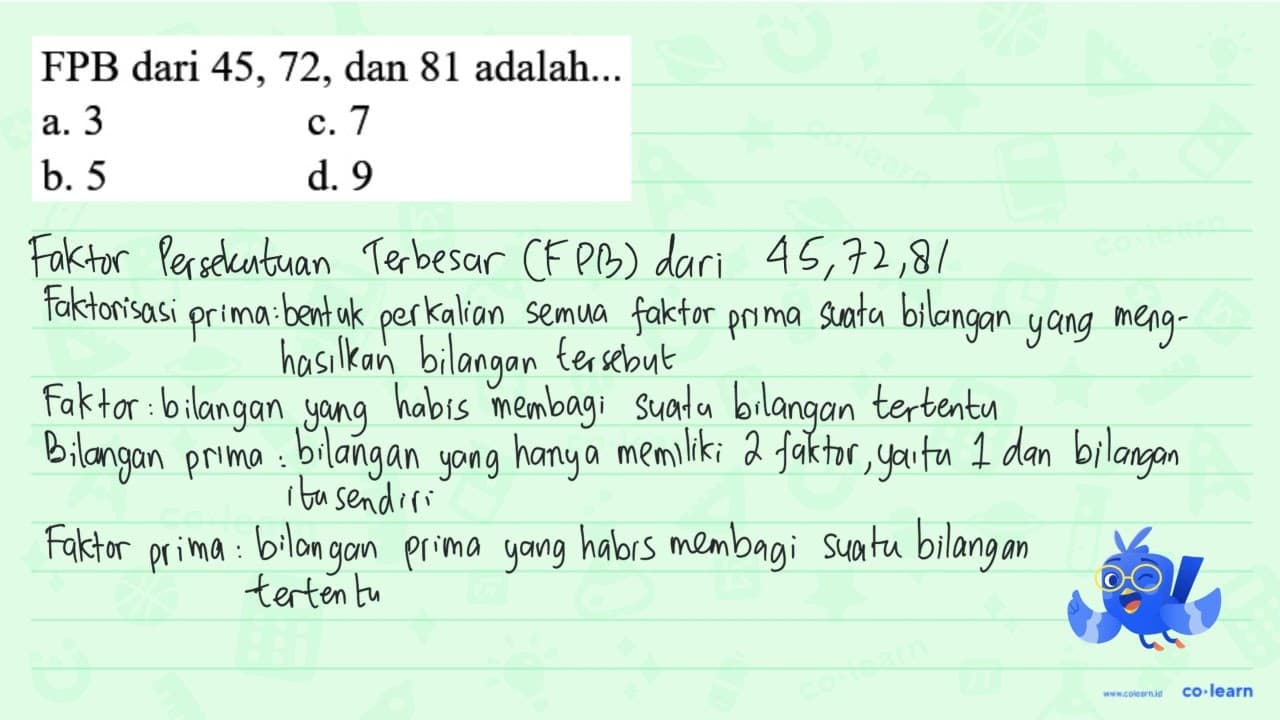 FPB dari 45, 72, dan 81 adalah...
a. 3 c. 7
b. 5 d. 9
Faktor Persekutuan Terbesar (FPB) dari 45,72,81
Faktorisasi prima : bentuk perkalian semua faktor prima suatu bilangan yang meng-
hasilkan bilangan tersebut
Faktor : bilangan yang habis membagi suatu bilangan tertentu
Bilangan prima : bilangan yang hanya memiliki 2 faktor, yaitu 1 dan bilangan
itu sendiri
Faktor prima : bilangan prima yang habis membagi suatu bilangan
tertentu
www.colearn.id co·learn